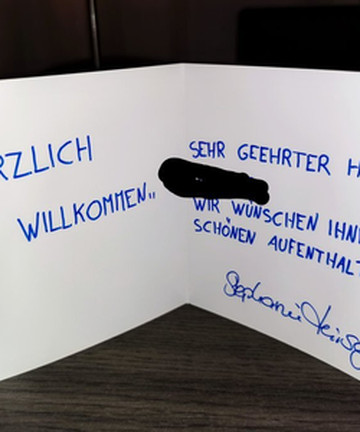 RZLICH
WILLKOMMEN„
SEHR GEEHRTER H
WIR WÜNSCHEN IHN
SCHÖNEN AUFENTHALT
Stephanie